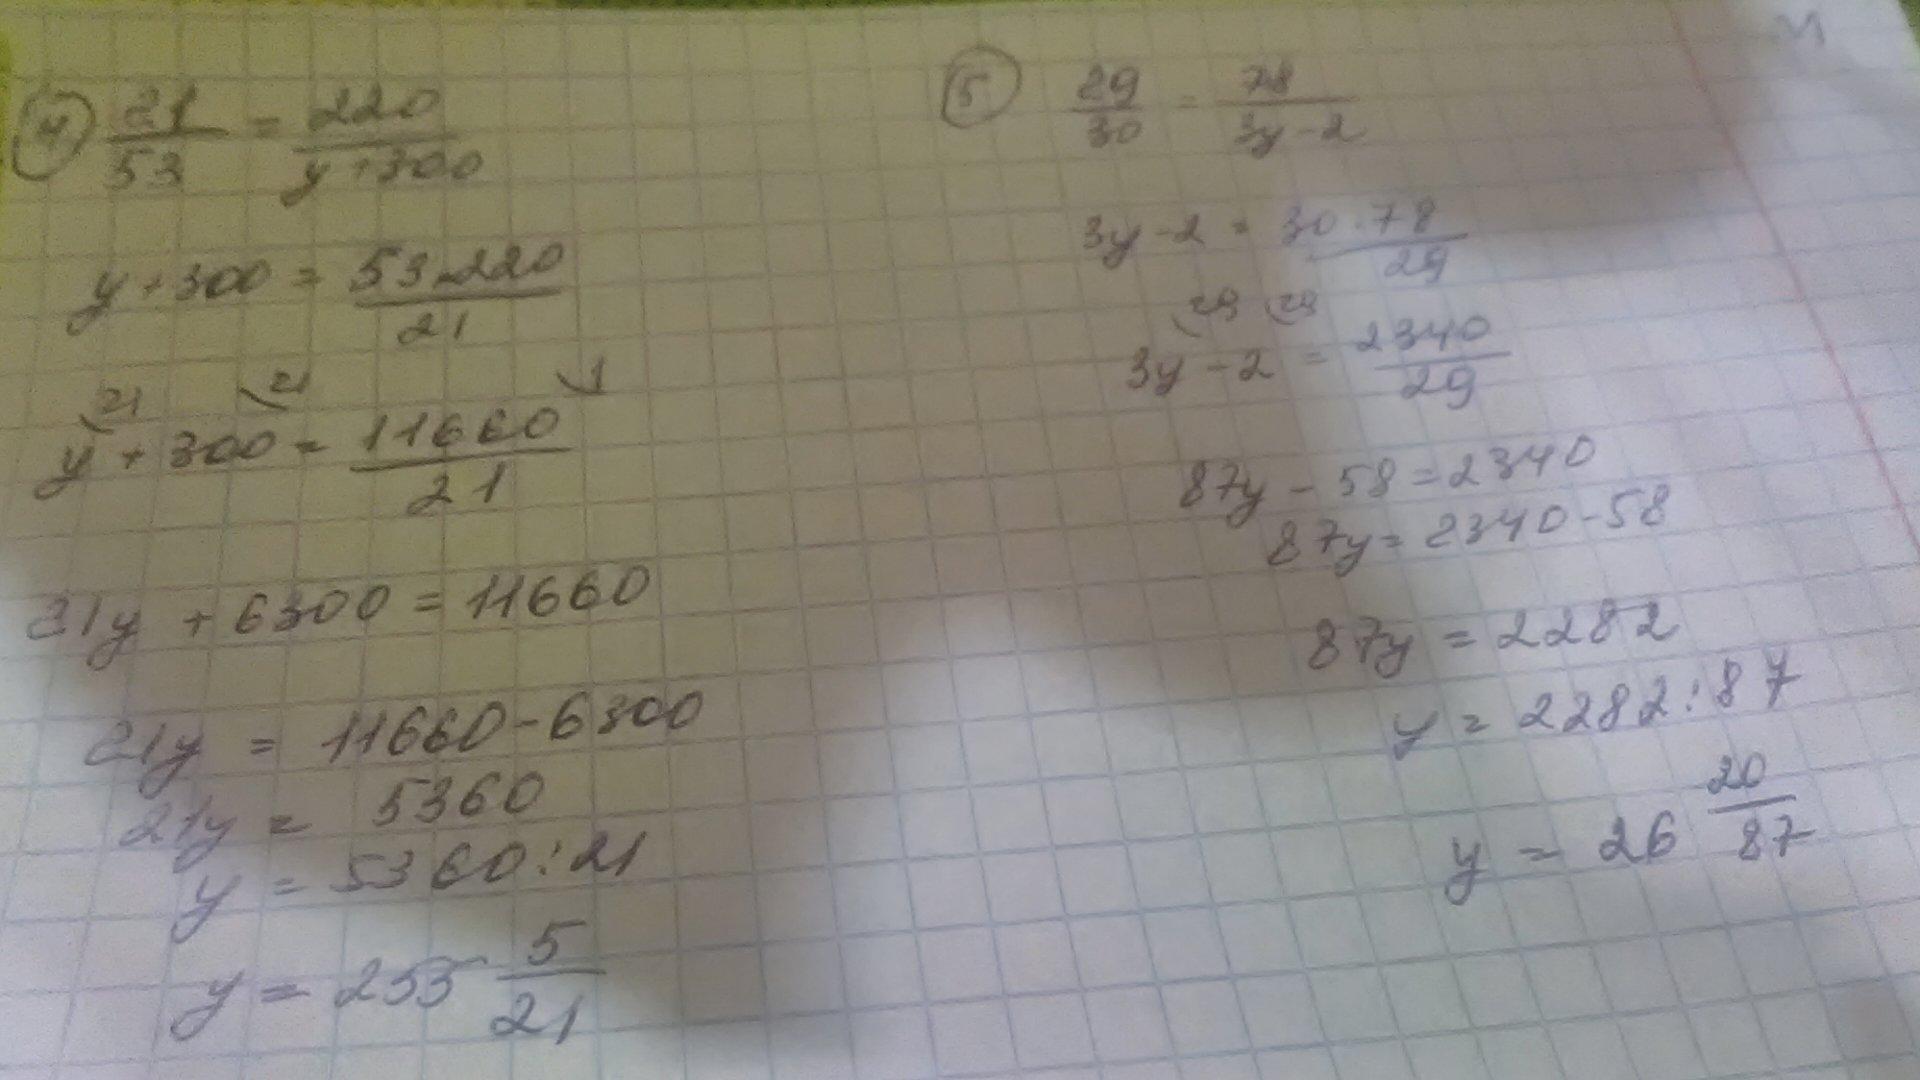 4) 21/53 = 220/(y+300)
y+300 = 53·220/21
21 21 1
y+300 = 11660/21
21y + 6300 = 11660
21y = 11660-6300
21y = 5360
y = 5360:21
y = 255 5/21
5) 29/30 = 78/(3y-2)
3y-2 = 30·78/29
29 29
3y-2 = 2340/29
87y - 58 = 2340
87y = 2340-58
87y = 2282
y = 2282:87
y = 26 20/87